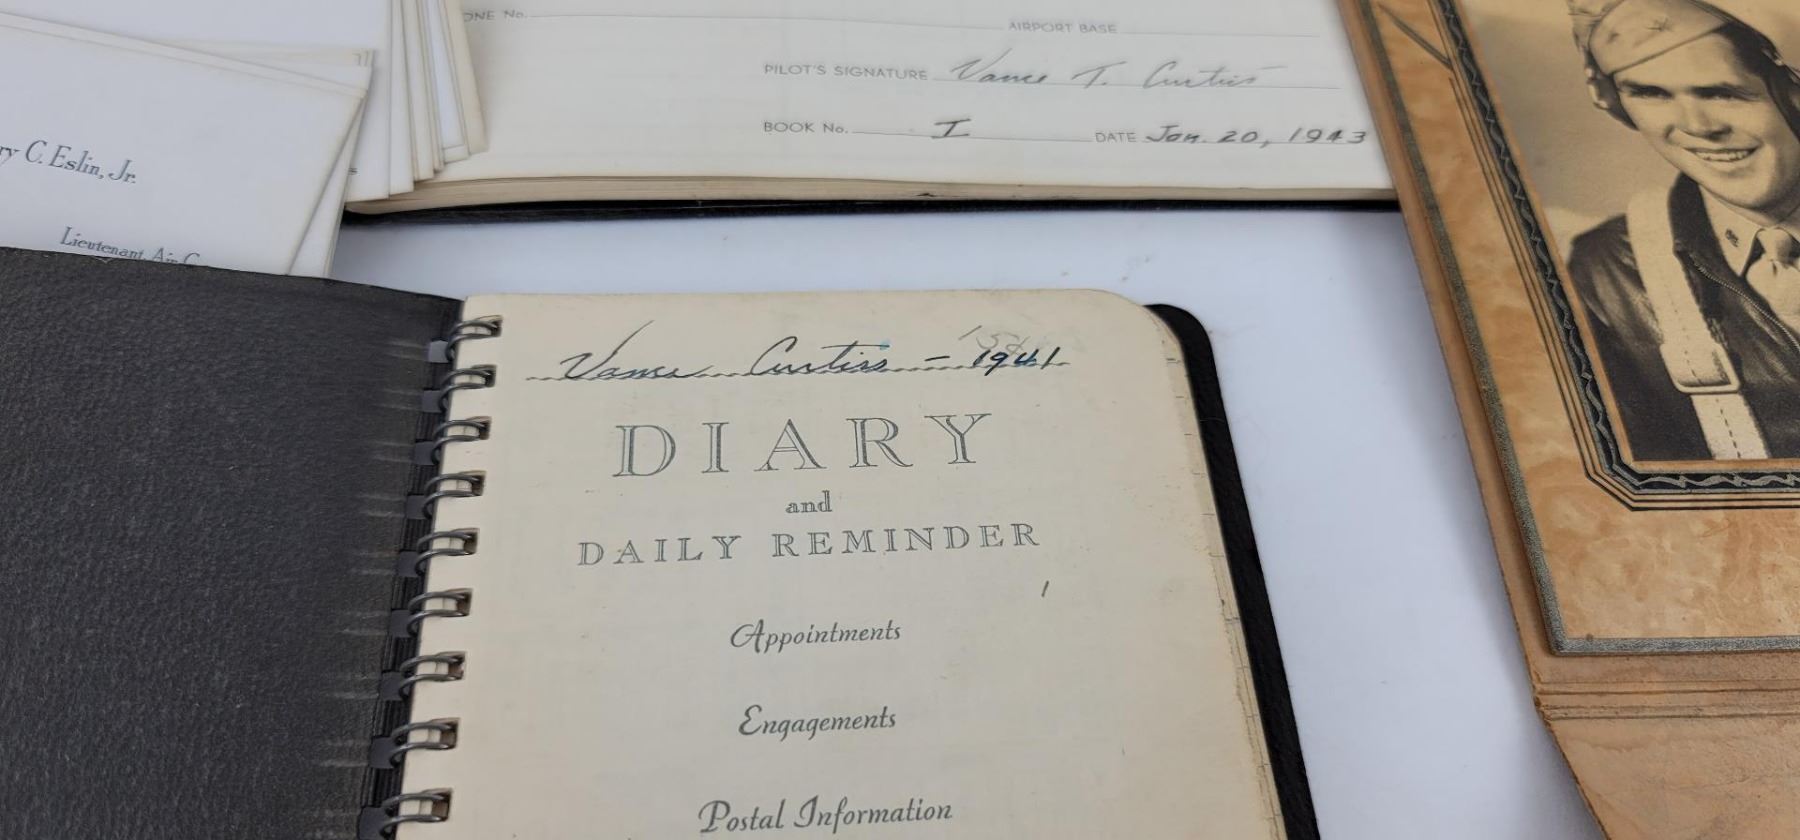 ONE No. AIRPORT BASE
PILOT'S SIGNATURE Vance T. Curtis
BOOK No. I DATE Jan. 20, 1943
C. Eslin, Jr.
Lieutenant, Air C
Vance Curtis - 1941
DIARY
and
DAILY REMINDER
Appointments
Engagements
Postal Information